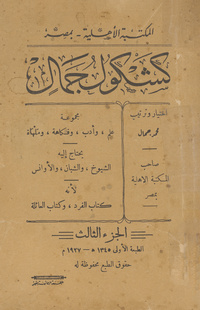 المكتبة الأهلية - بمصر
كشكول جمال
اختيار وترتيب
محمد جمال
صاحب
المكتبة الاهلية
بمصر
مجموعة
علم، وأدب، وفكاهة، ومُلهاة
يحتاج إليه
الشيوخ، والشبان، والأوانس
لأنه
كتاب الفرد، وكتاب العائلة
الجزء الثالث
الطبعة الأولى ١٣٤٥ هـ - ١٩٢٧ م
حقوق الطبع محفوظة له